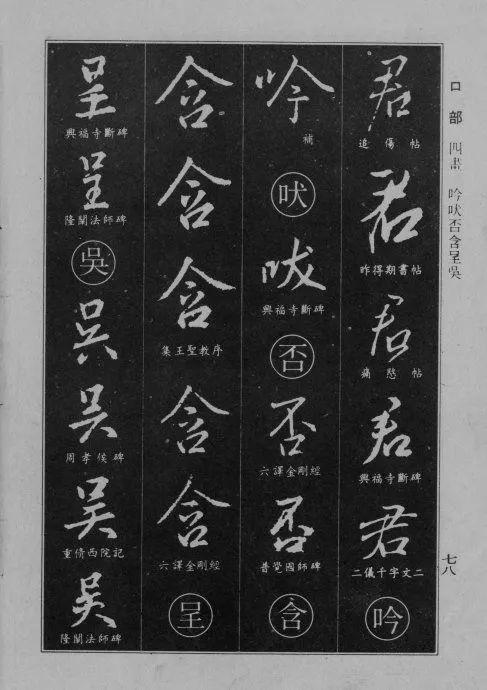 口部 四畫 吟吠否含呈吳
七八
君
追傷帖
君
昨得期書帖
君
痛愍帖
君
興福寺斷碑
君
二儀千字文二
吟
吟
補
吠
吠
興福寺斷碑
否
否
六譯金剛經
否
普覺國師碑
含
含
含
含
集王聖教序
含
含
六譯金剛經
呈
呈
興福寺斷碑
呈
隆闡法師碑
吳
吳
吳
周孝侯碑
吳
重脩西院記
吳
隆闡法師碑